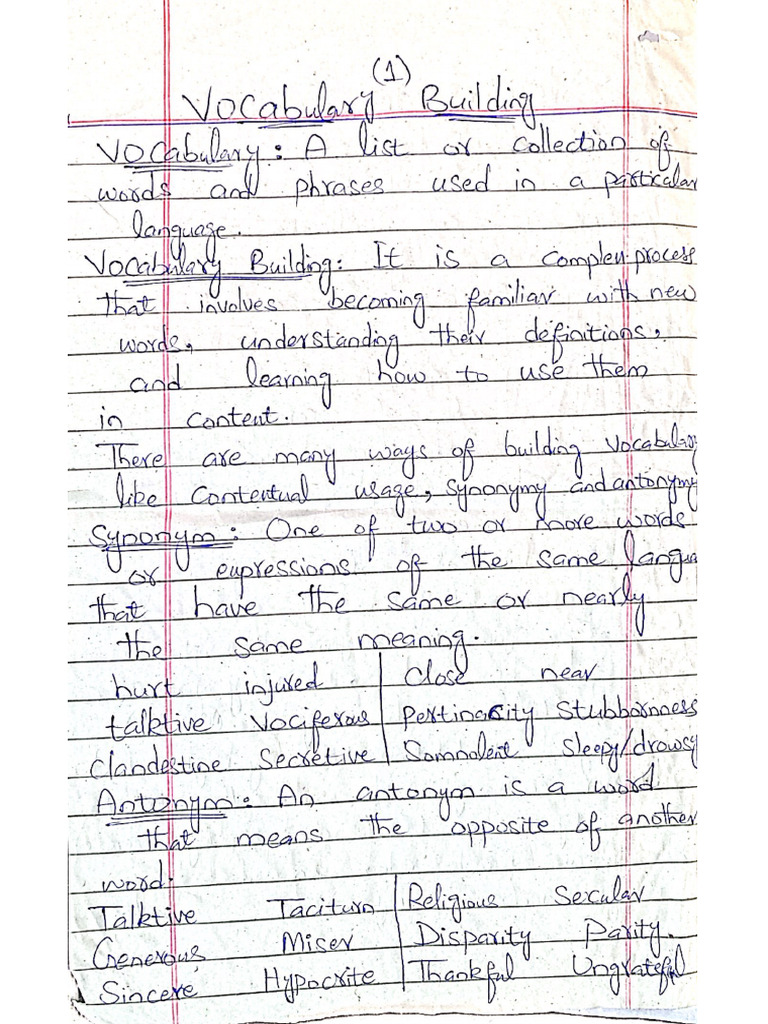 (1)
Vocabulary Building
Vocabulary: A list or collection of
words and phrases used in a particular
language.
Vocabulary Building: It is a complex process
that involves becoming familiar with new
words, understanding their definitions,
and learning how to use them
in context.
There are many ways of building vocabulary
like Contextual usage, synonymy and antonymy
Synonym: One of two or more words
or expressions of the same langua
that have the same or nearly
the same meaning.
hurt injured | Close near
talktive Vociferous | Pertinacity Stubbornness
Clandestine Secretive | Somnolent Sleepy/drowsy
Antonym: An antonym is a word
that means the opposite of another
word.
Talktive Taciturn | Religious Secular
Generous Miser | Disparity Parity.
Sincere Hypocrite | Thankful Ungrateful